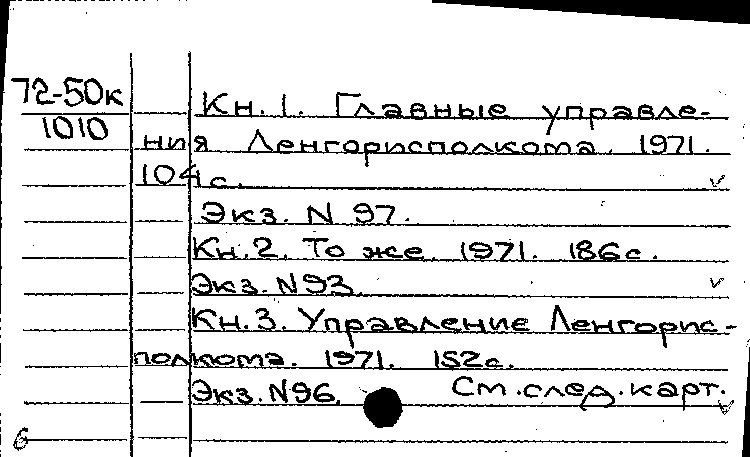 72-50к
1010
Кн. 1. Главные управле-
ния Ленгорисполкома. 1971.
104 с.
Экз. N 97.
Кн. 2. То же. 1971. 186 с.
Экз. N 93.
Кн. 3. Управление Ленгорис-
полкома. 1971. 152 с.
Экз. N 96. См. след. карт.
6